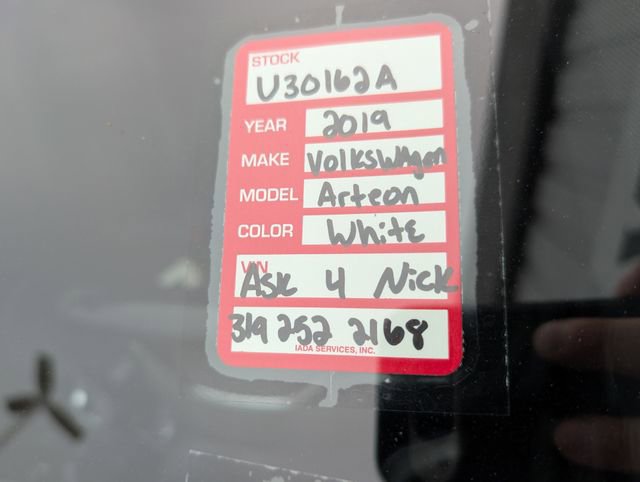 STOCK
U30162A
YEAR 2019
MAKE VolksWAgon
MODEL Arteon
COLOR White
VIN
Ask 4 Nick
319 252 2168
IADA SERVICES, INC.